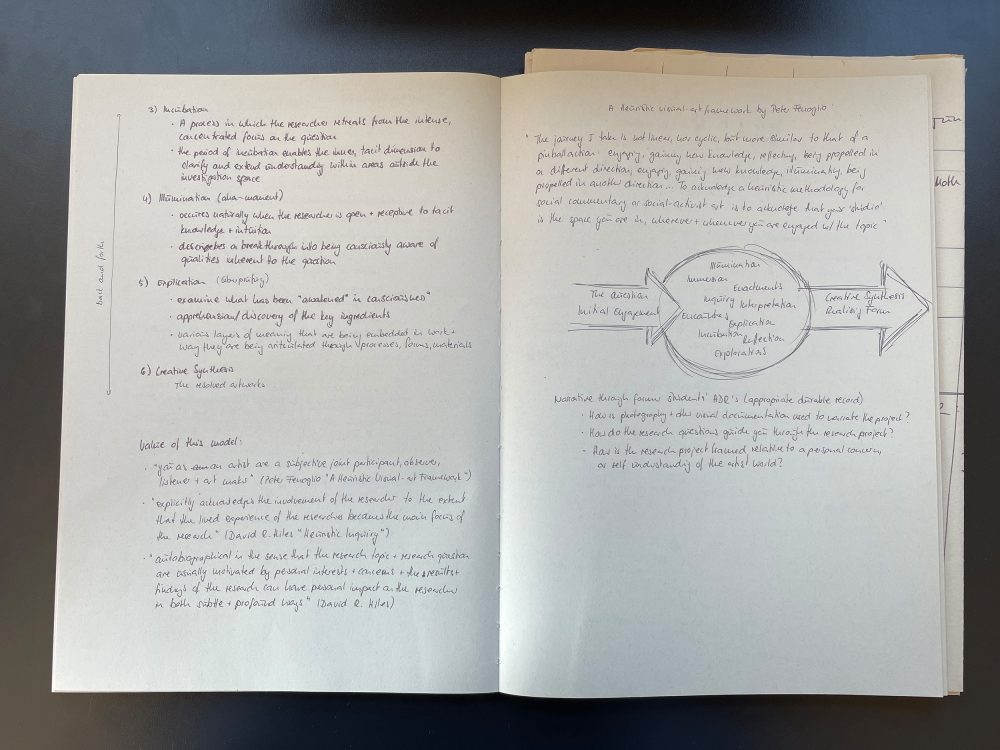 3) Incubation
• A process in which the researcher retreats from the intense,
concentrated focus on the question
• the period of incubation enables the inner, tacit dimension to
clarify and extend understanding within areas outside the
investigation space
4) Illumination (aha-moment)
• occures naturally when the researcher is open + receptive to tacit
knowledge + intuition
• describes a breakthrough into being consciously aware of
qualities inherent to the question
5) Explication (Überprüfung)
• examine what has been "awakened" in consciousness"
• apprehension/discovery of the key ingredients
• various layers of meaning that are being embedded in work +
way they are being articulated through processes, forms, materials
6) Creative Synthesis
The resolved artworks
back and forth
Value of this model:
• "you as an artist are a subjective joint participant, observer,
listener + art maker" (Peter Fenoglio "A Heuristic Visual-art Framework")
• "explicitly acknowledges the involvement of the researcher to the extent
that the lived experience of the researcher becomes the main focus of
the research" (David R. Hiles "Heuristic Inquiry")
• "autobiographical in the sense that the research topic + research question
are usually motivated by personal interests + concerns + the results +
findings of the research can have personal impact on the researcher
in both subtle + profound ways" (David R. Hiles)
A Heuristic visual-art framework by Peter Fenoglio
"The journey I take is not linear, nor cyclic, but more similar to that of a
pinball action: engaging, gaining new knowledge, reflecting, being propelled in
a different direction, engaging, gaining new knowledge, illuminating, being
propelled in another direction... To acknowledge a heuristic methodology for
social commentary or social-activist art is to acknowledge that your 'studio'
is the space you are in, wherever + whenever you are engaged w/ the topic"
The Question
Initial Engagement
Illumination
Immersion
Enactments
Inquiry Interpretation
Encounters
Explication
Incubation
Reflection
Explorations
Creative Synthesis
Realising Form
Narrative through former students' ADR's (appropriate durable record)
• How is photography + other visual documentation used to narrate the project?
• How do the research questions guide you through the research project?
• How is the research project framed relative to a personal concern,
or self understanding of the artist world?